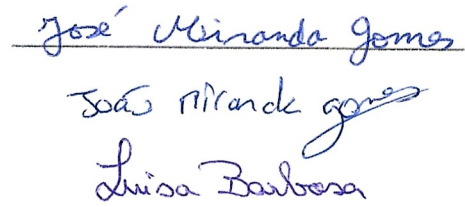 José Miranda Gomes
João Miranda gomes
Luisa Barbosa